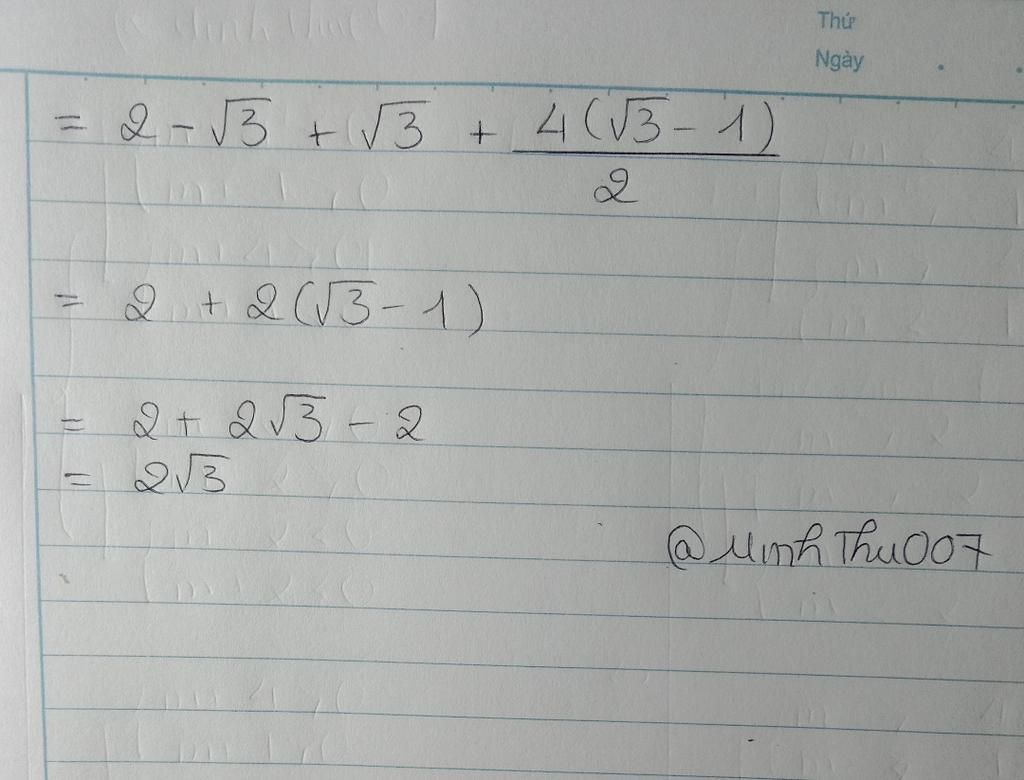 Thứ
Ngày
= 2 - √3 + √3 + 4(√3 - 1) / 2
= 2 + 2(√3 - 1)
= 2 + 2√3 - 2
= 2√3
@MinhThu007